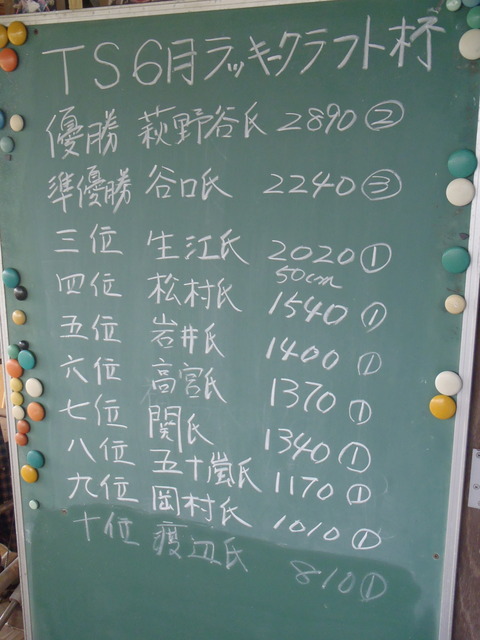 TS6月ラッキークラフト杯
優勝 萩野谷氏 2890②
準優勝 谷口氏 2240③
三位 生江氏 2020①
50cm
四位 松村氏 1540①
五位 岩井氏 1400①
六位 高宮氏 1370①
七位 関氏 1340①
八位 五十嵐氏 1170①
九位 岡村氏 1010①
十位 渡辺氏 810①